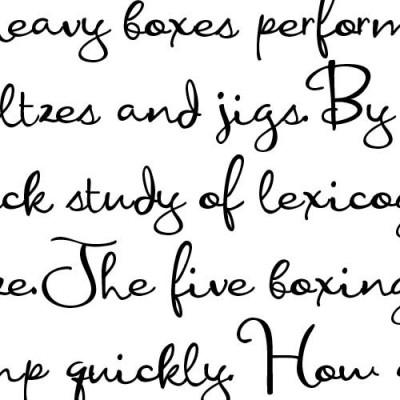 heavy boxes perform
ltzes and jigs. By
ck study of lexicog
e. The five boxing
mp quickly. How